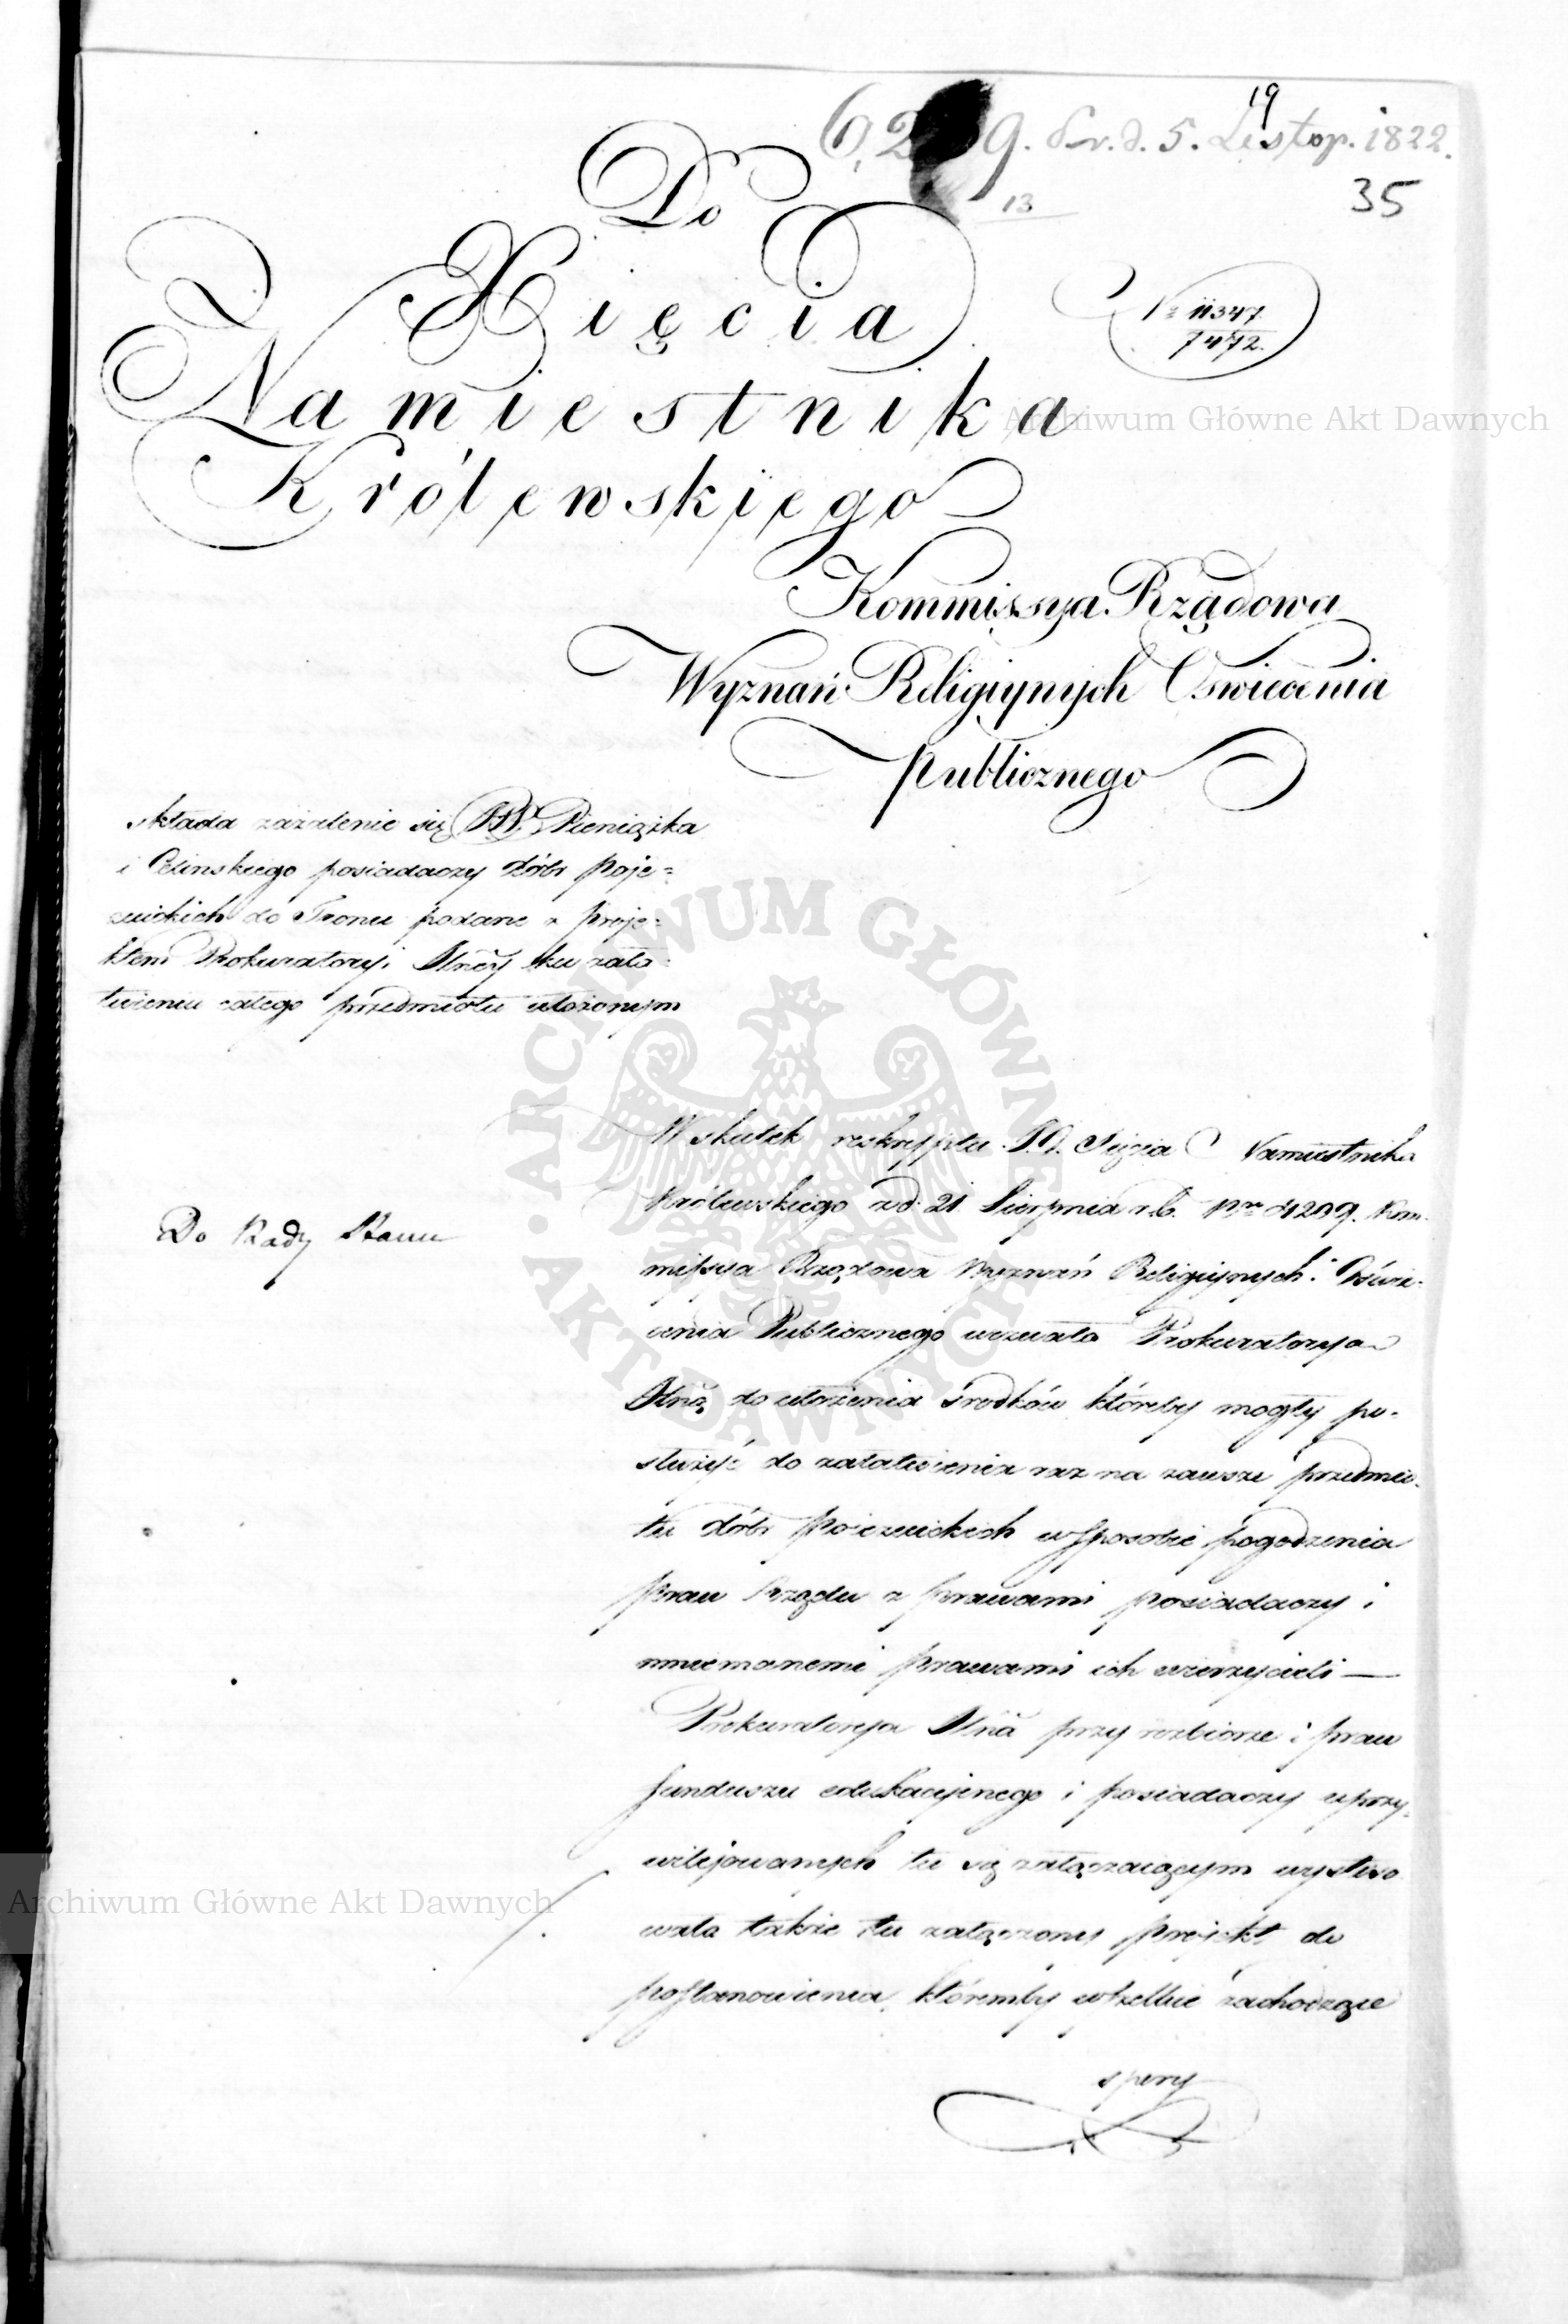 19
6,2 9. Pr. d. 5. Listop. 1822.
13
35
Do
Xięcia
Namiestnika
Królewskiego
Nº 11347.
7472.
Archiwum Główne Akt Dawnych
Kommissya Rządowa
Wyznań Religiynych Oswiecenia
publicznego
składa zażalenie się JPP. Pieniążka
i Celinskiego posiadaczy dóbr poje=
zuickich do Tronu podane z proje=
ktem Prokuratoryi Jlney ku zała=
twieniu całego przedmiotu ułożonym
ARCHIWUM GŁÓWNE
AKT DAWNYCH
W skutek reskryptu J.O. Xięcia Namiestnika
Królewskiego z d. 21 Sierpnia r.b. Nro 4299. Kom-
Do Rady Stanu
missya Rządowa Wyznań Religiynych i Oświe-
cenia Publicznego wezwała Prokuratorya
Jlną do ułożenia środków któreby mogły po-
służyć do załatwienia raz na zawsze przedmio-
tu dóbr pojezuickich w sposobie pogodzenia
praw Rządu z prawami posiadaczy i
mniemanemi prawami ich wierzycieli —
Prokuratorya Jlna przy rozbiorze i praw
funduszu edukacyinego i posiadaczy uprzy-
wilejowanych tu się załączaiącym wystoso
wała także tu załączony projekt do
postanowienia, któremby wszelkie zachodzące
Archiwum Główne Akt Dawnych
spory